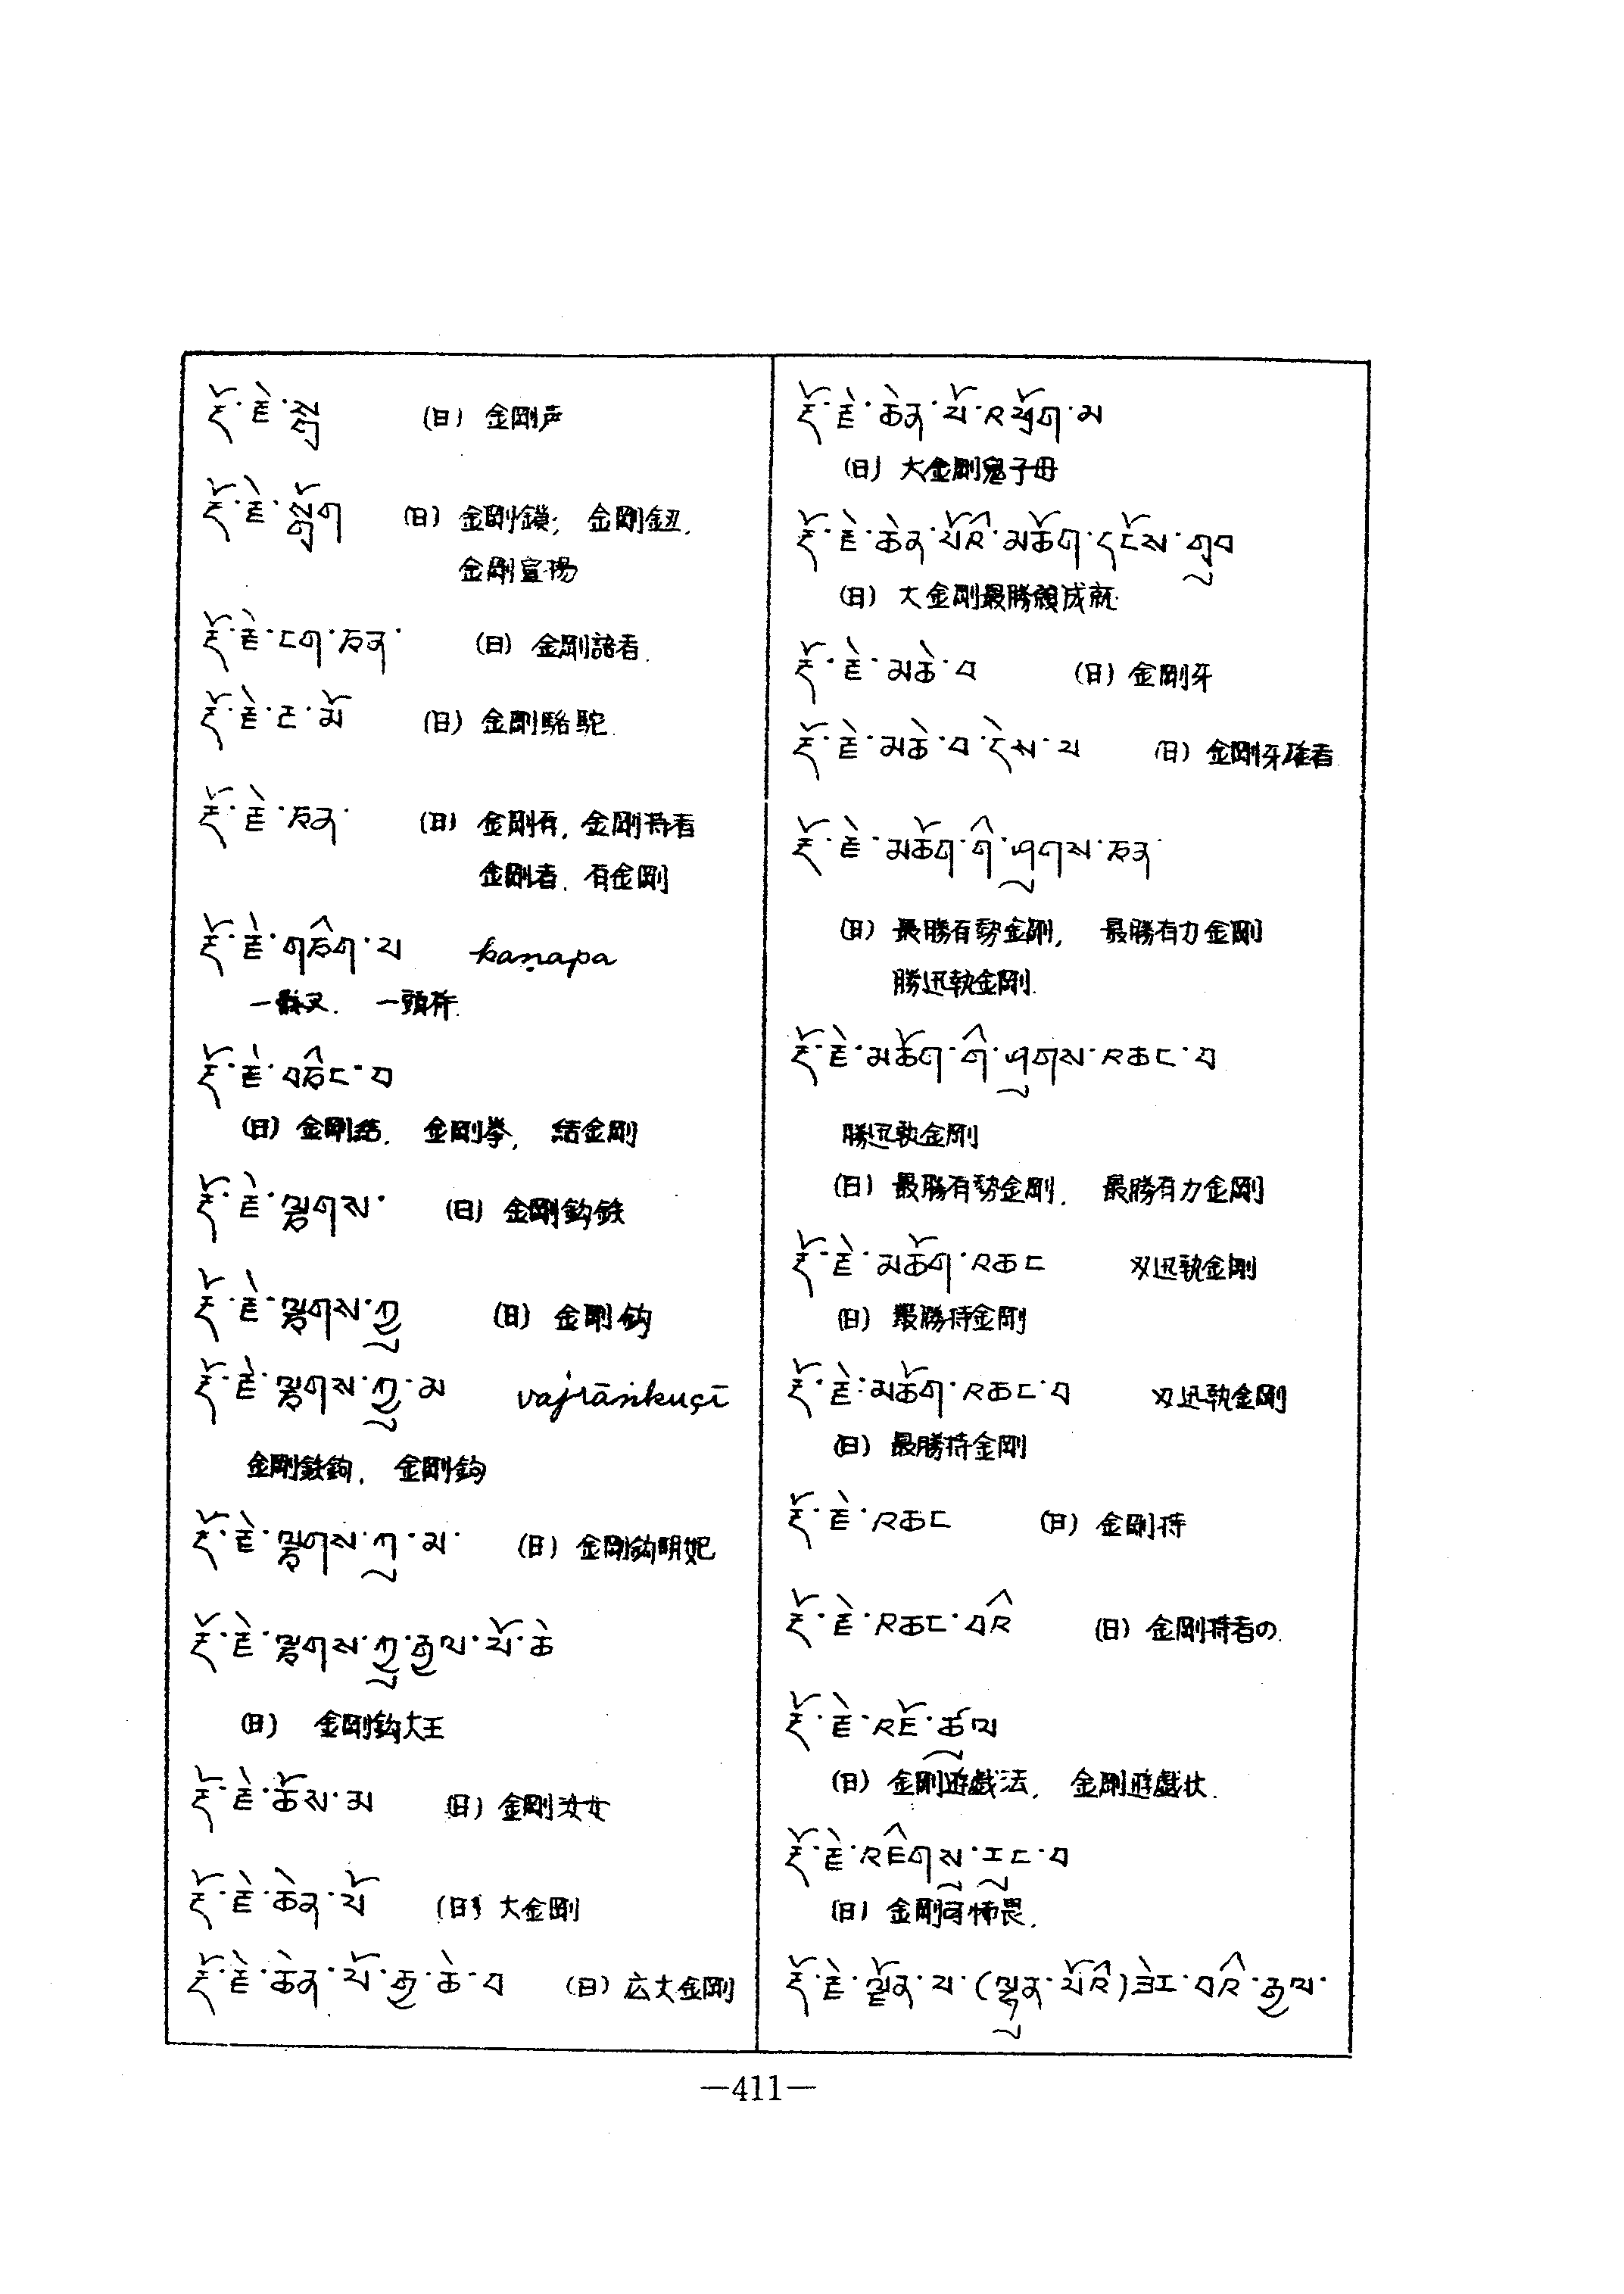 རྡོ་རྗེ་སྒྲ (日) 金剛声
རྡོ་རྗེ་སྒྲོག (日) 金剛鎖; 金剛鈕,
金剛宣揚
རྡོ་རྗེ་ངག་ཅན་ (日) 金剛語者.
རྡོ་རྗེ་ང་མོ (日) 金剛駱駝.
རྡོ་རྗེ་ཅན་ (日) 金剛有, 金剛持者
金剛者, 有金剛
རྡོ་རྗེ་གཅིག་པ kaṇapa
一股叉. 一頭杵.
རྡོ་རྗེ་བཅིང་བ
(日) 金剛結, 金剛拳, 結金剛
རྡོ་རྗེ་ལྕགས་ (日) 金剛鈎鉄
རྡོ་རྗེ་ལྕགས་ཀྱུ (日) 金剛鈎
རྡོ་རྗེ་ལྕགས་ཀྱུ་མ vajrāṅkuçī
金剛鉄鉤, 金剛鈎
རྡོ་རྗེ་ལྕགས་ཀུ་མ་ (日) 金剛鈎明妃
རྡོ་རྗེ་ལྕགས་ཀྱུ་རྒྱལ་པོ་ཆེ
(日) 金剛鈎大王
རྡོ་རྗེ་ཆོས་མ (日) 金剛女
རྡོ་རྗེ་ཆེན་པོ (日) 大金剛
རྡོ་རྗེ་ཆེན་པོ་རྒྱ་ཆེ་བ (日) 広大金剛
རྡོ་རྗེ་ཆེན་པོ་འཕྲོག་མ
(日) 大金剛鬼子母
རྡོ་རྗེ་ཆེན་པོའི་མཆོག་དངོས་གྲུབ
(日) 大金剛最勝成就
རྡོ་རྗེ་མཆེ་བ (日) 金剛牙
རྡོ་རྗེ་མཆེ་བ་ངེས་པ (日) 金剛牙確者.
རྡོ་རྗེ་མཆོག་གི་ཤུགས་ཅན་
(日) 最勝有勢金剛, 最勝有力金剛
勝迅執金剛.
རྡོ་རྗེ་མཆོག་གི་ཤུགས་འཆང་བ
勝迅執金剛
(日) 最勝有勢金剛, 最勝有力金剛
རྡོ་རྗེ་མཆོག་འཆང 双迅執金剛
(日) 最勝持金剛
རྡོ་རྗེ་མཆོག་འཆང་བ 双迅執金剛
(日) 最勝持金剛
རྡོ་རྗེ་འཆང (日) 金剛持
རྡོ་རྗེ་འཆང་བའི (日) 金剛持者の.
རྡོ་རྗེ་འཇོ་ཚུལ
(日) 金剛遊戯法, 金剛遊戯状.
རྡོ་རྗེ་འཇིགས་རུང་བ
(日) 金剛可怖畏.
རྡོ་རྗེ་ལྗོན་པ་(ལྷུན་པོའི)ཟེར་བའི་རྒྱལ་
—411—